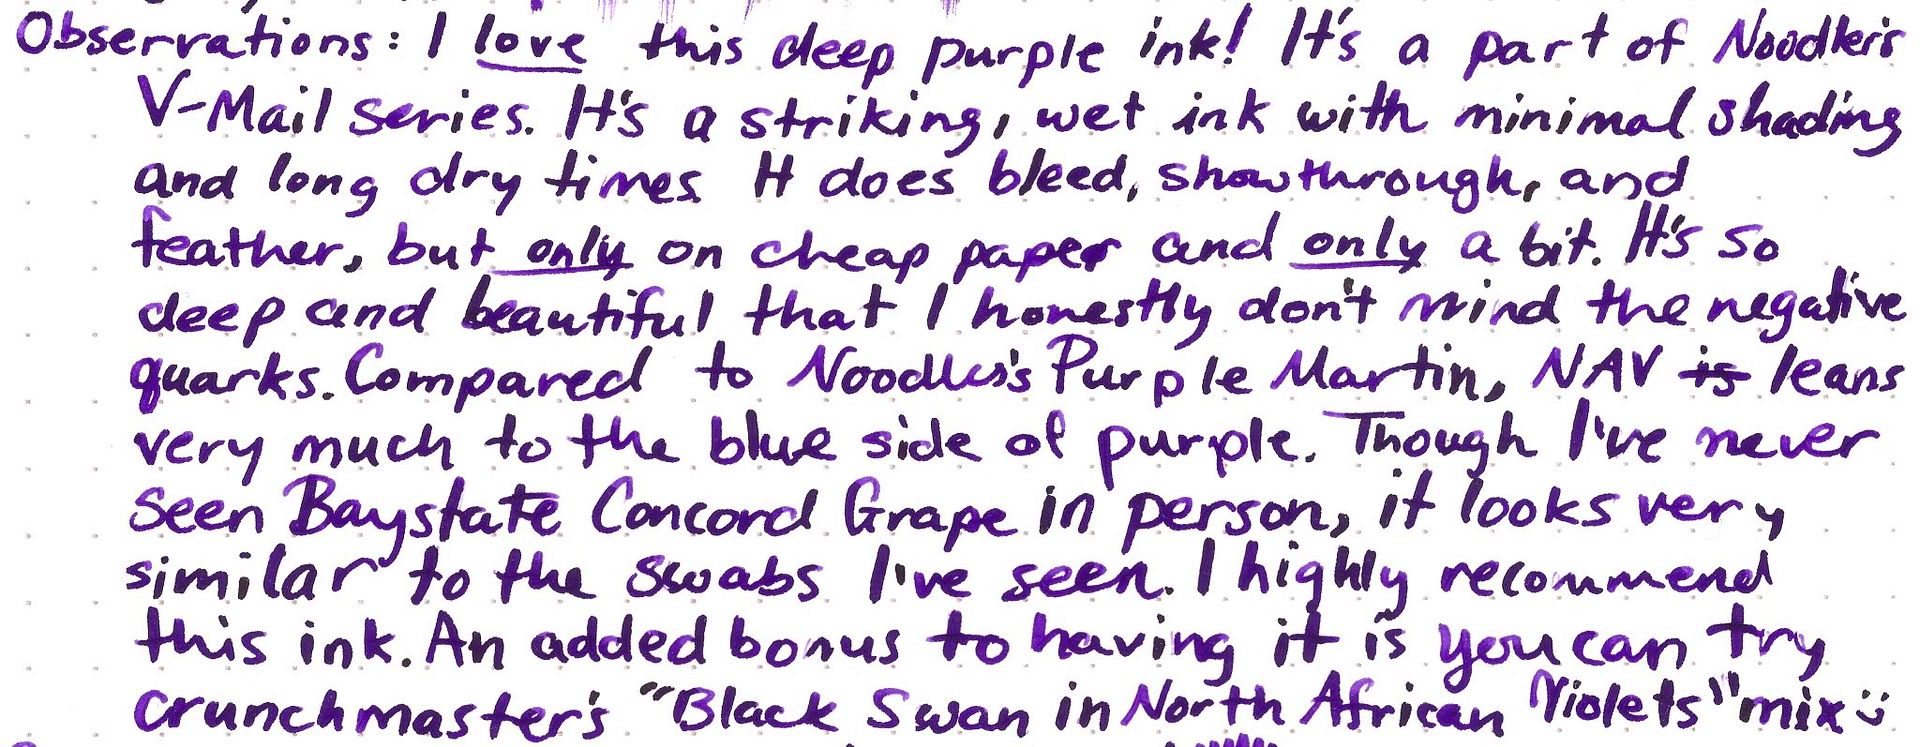 Observations: I love this deep purple ink! It's a part of Noodler's
V-Mail series. It's a striking, wet ink with minimal shading
and long dry times It does bleed, showthrough, and
feather, but only on cheap paper and only a bit. It's so
deep and beautiful that I honestly don't mind the negative
quarks. Compared to Noodler's Purple Martin, NAV is leans
very much to the blue side of purple. Though I've never
seen Baystate Concord Grape in person, it looks very
similar to the swabs I've seen. I highly recommend
this ink. An added bonus to having it is you can try
crunchmaster's "Black Swan in North African Violets" mix :)